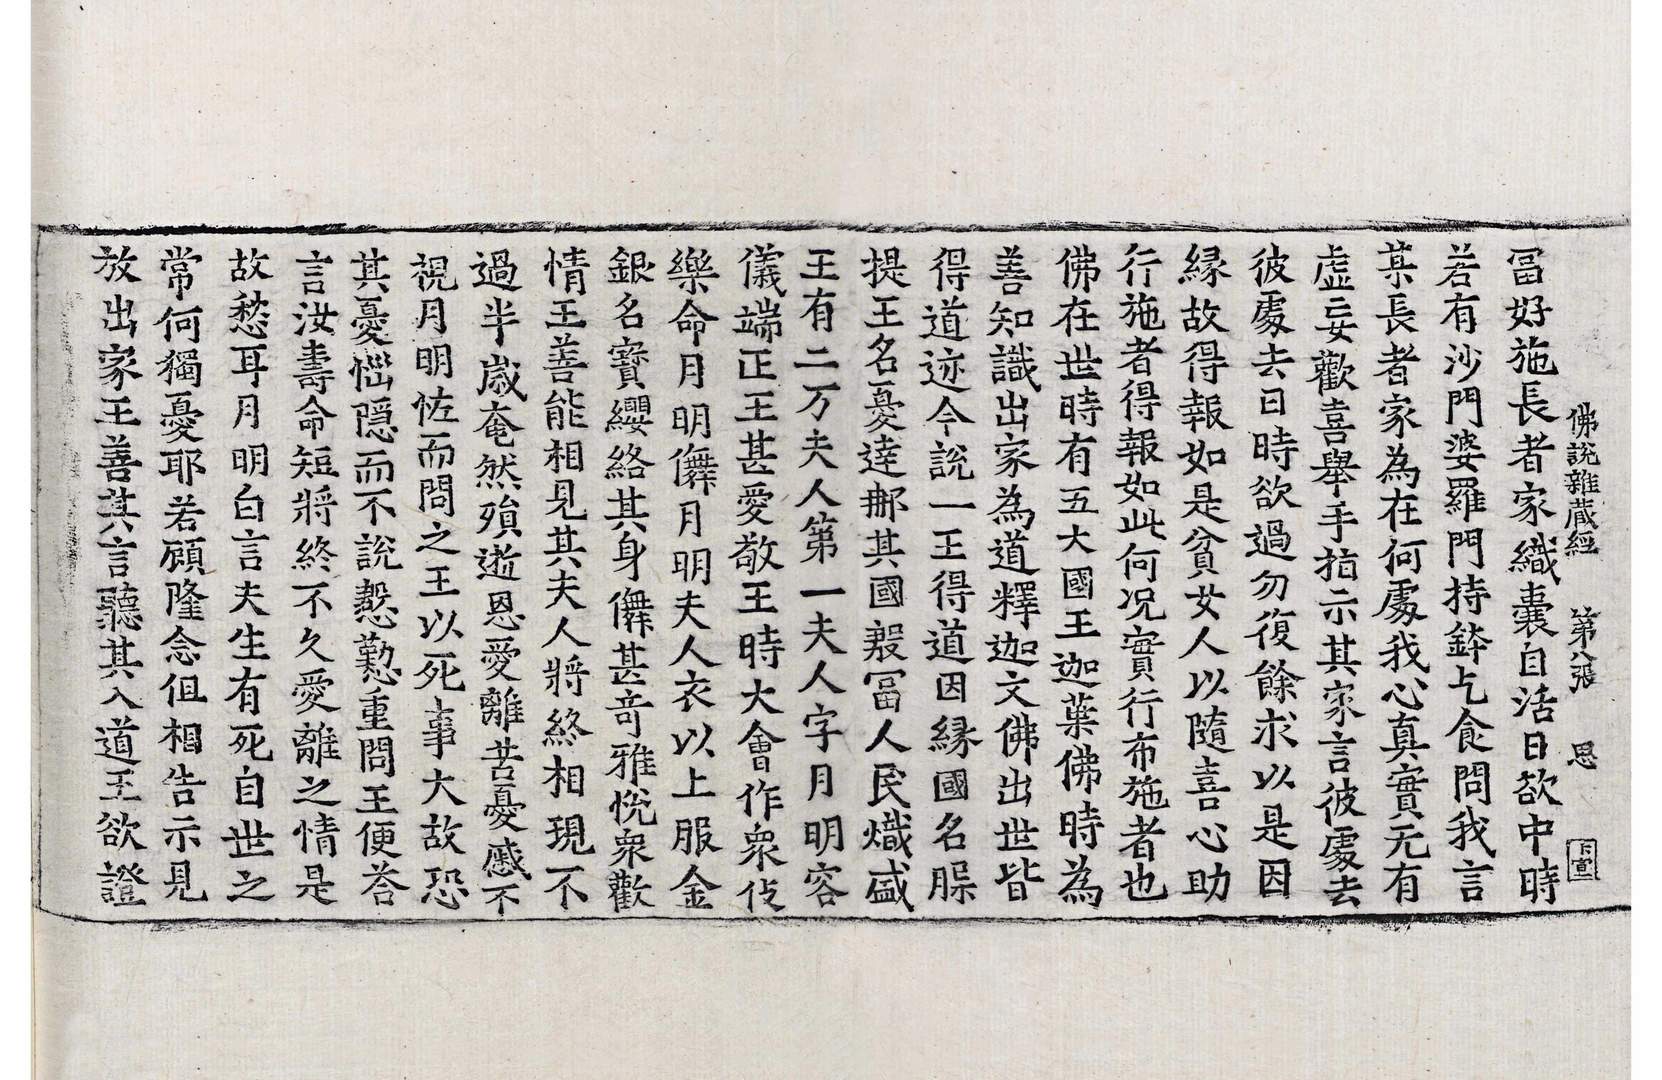 佛説雜藏經　第八張　思　卞宣
冨好施長者家織囊自活日欲中時
若有沙門婆羅門持鉢乞食問我言
某長者家為在何處我心真實无有
虛妄歡喜舉手指示其家言彼處去
彼處去日時欲過勿復餘求以是因
緣故得報如是貧女人以隨喜心助
行施者得報如此何況實行布施者也
佛在世時有五大國王迦葉佛時為
善知識出家為道釋迦文佛出世皆
得道迹今說一王得道因緣國名䐗
提王名憂達那其國殷冨人民熾盛
王有二万夫人第一夫人字月明容
儀端正王甚愛敬王時大會作衆伎
樂命月明儛月明夫人衣以上服金
銀名寶纓絡其身儛甚奇雅悅衆歡
情王善能相見其夫人將終相現不
過半歲奄然殞逝恩愛離苦憂慼不
視月明恠而問之王以死事大故恐
其憂惱隱而不說慇懃重問王便荅
言汝壽命短將終不久愛離之情是
故愁耳月明白言夫生有死自世之
常何獨憂耶若顧隆念但相告示見
放出家王善其言聽其入道王欲證